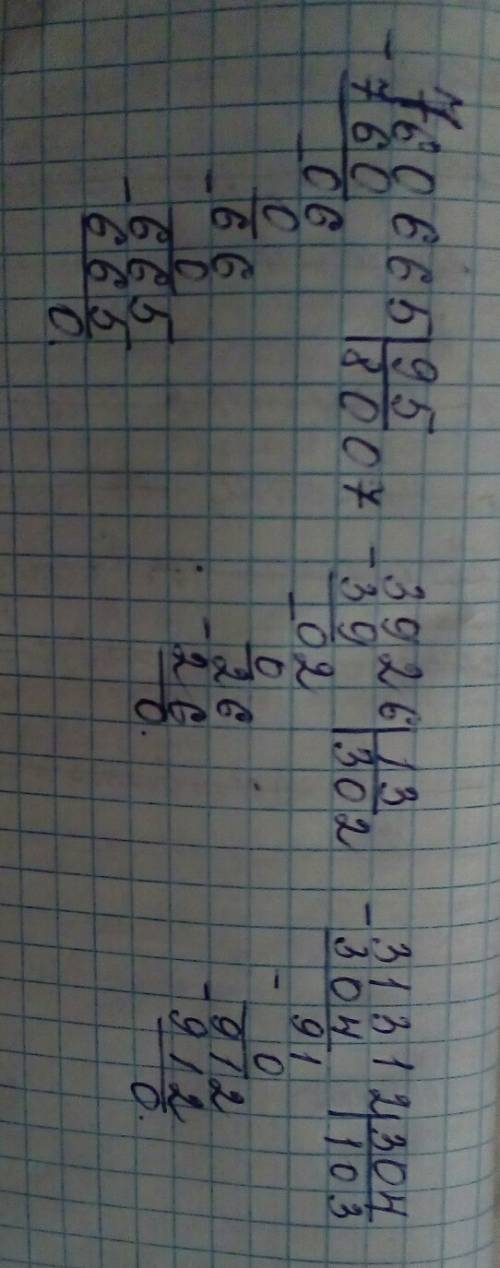 760665 95
- 760 8007
- 06
0
- 66
0
- 665
665
0.
3926 13
- 39 302
- 02
0
- 26
26
0.
31312 304
- 304 103
- 91
0
- 912
912
0.